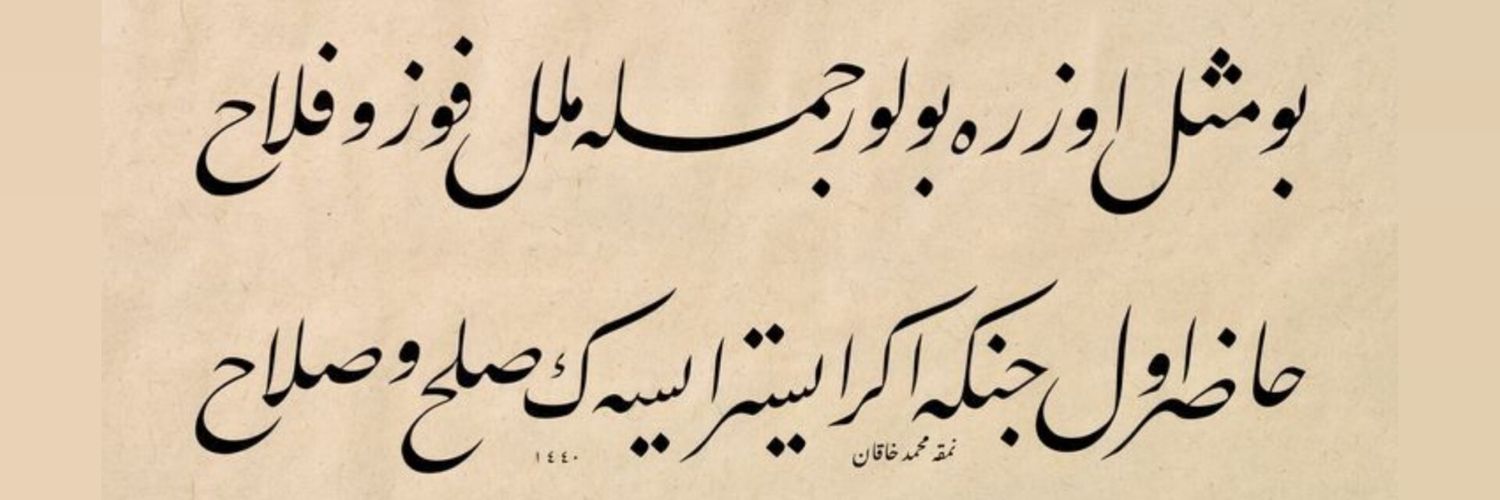 بو مثل اوزره بولور جمله ملل فوز و فلاح
حاضر اول جنكه اكر ايستر ايسيه ك صلح و صلاح
نمقه محمد خاقان
١٤٤٠